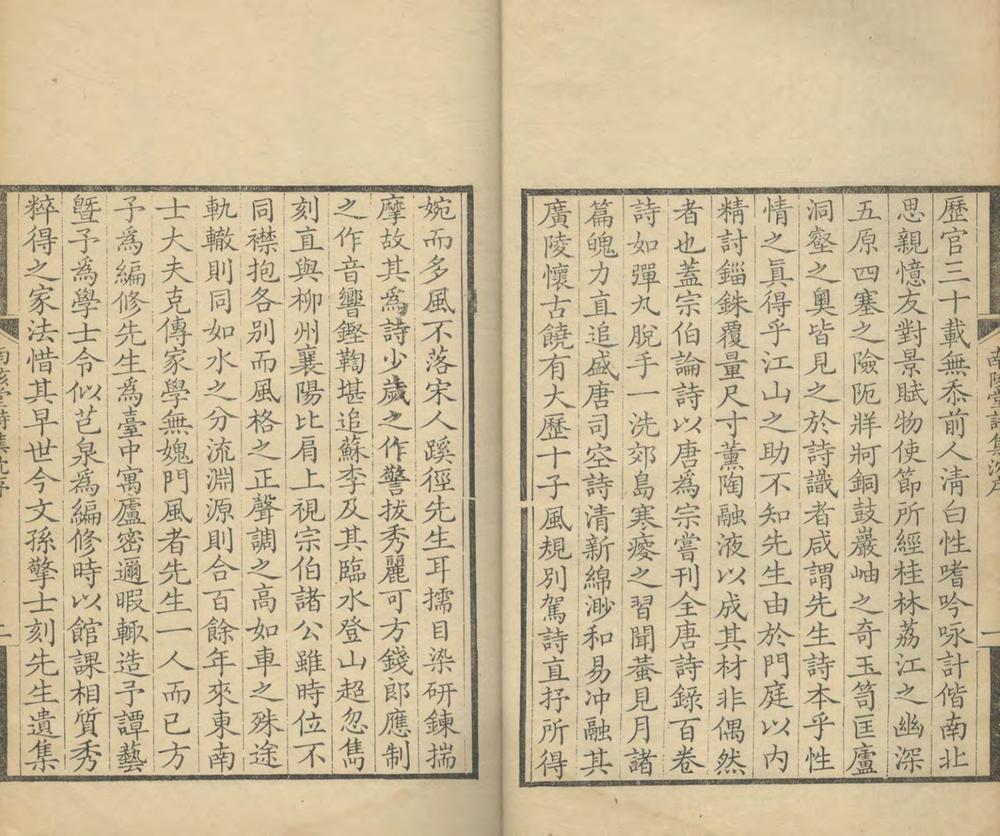 歷官三十載無忝前人淸白性嗜吟咏計偕南北
思親憶友對景賦物使節所經桂林荔江之幽深
五原四塞之險阨牂牁銅鼓巖岫之奇玉笥匡廬
洞壑之奧皆見之於詩識者咸謂先生詩本乎性
情之眞得乎江山之助不知先生由於門庭以內
精討錙銖覆量尺寸薰陶融液以成其材非偶然
者也蓋宗伯論詩以唐爲宗嘗刊全唐詩錄百卷
詩如彈丸脫手一洗郊島寒瘦之習聞蛩見月諸
篇魄力直追盛唐司空詩清新綿渺和易冲融其
廣陵懷古饒有大歷十子風規別駕詩直抒所得
婉而多風不落宋人蹊徑先生耳擩目染研鍊揣
摩故其爲詩少歲之作警拔秀麗可方錢郎應制
之作音響鏗鞫堪追蘇李及其臨水登山超忽雋
刻直與柳州襄陽比肩上視宗伯諸公雖時位不
同襟抱各別而風格之正聲調之高如車之殊途
軌轍則同如水之分流淵源則合百餘年來東南
士大夫克傳家學無媿門風者先生一人而已方
予爲編修先生爲臺中寓廬密邇暇輒造予譚藝
曁予爲學士令似芑泉爲編修時以館課相質秀
粹得之家法惜其早世今文孫擎士刻先生遺集
南陔堂詩集沈序
二